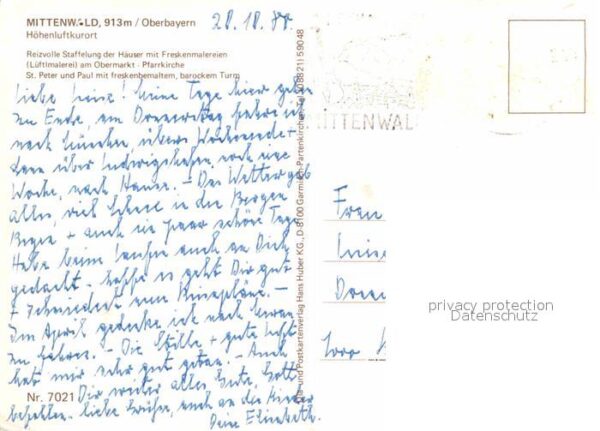 MITTENWALD, 913m / Oberbayern
Höhenluftkurort
28.10.
Reizvolle Staffelung der Häuser mit Freskenmalereien
(Lüftlmalerei) am Obermarkt · Pfarrkirche
St. Peter und Paul mit freskenbemaltem, barockem Turm
Liebe Luise! Meine Tage hier gehen
zu Ende, am Donnerstag fahre ich
nach München, übers Wochenende +
dann über Ludwigshafen noch eine
Woche, nach Hause. – Das Wetter gab
alles, viel Schnee in den Bergen
Regen + auch ein paar schöne Tage
Habe beim Laufen auch an Dich
gedacht. hoffe es geht Dir gut
+ schmiedest nun Reisepläne. –
Im April gedenke ich nach
zu fahren. – Die Stille + gute Luft
hat mir sehr gut getan. – Auch
Dir weiter alles Gute, Gott
befohlen. liebe Grüße, auch an die Kinder
Deine Elisabeth.
Nr. 7021
und Postkartenverlag Hans Huber KG., D-8100 Garmisch-Partenkirchen, Tel. (08821) 59048
MITTENWAL
Frau
Luise
privacy protection
Datenschutz